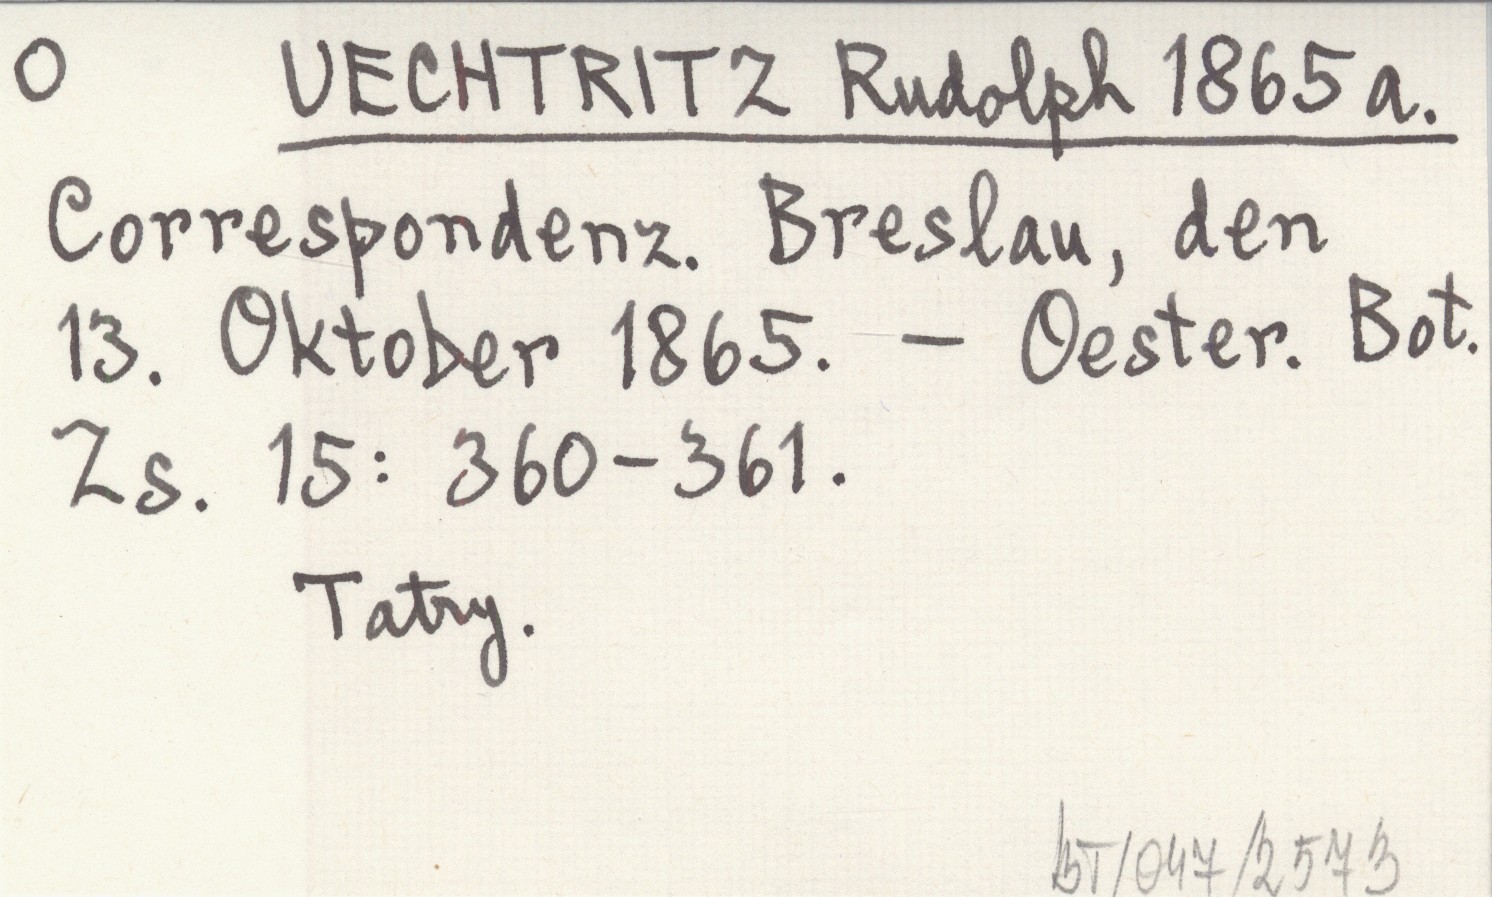 O UECHTRITZ Rudolph 1865 a.
Correspondenz. Breslau, den
13. Oktober 1865. — Oester. Bot.
Zs. 15: 360-361.
Tatry.
bT/047/2573